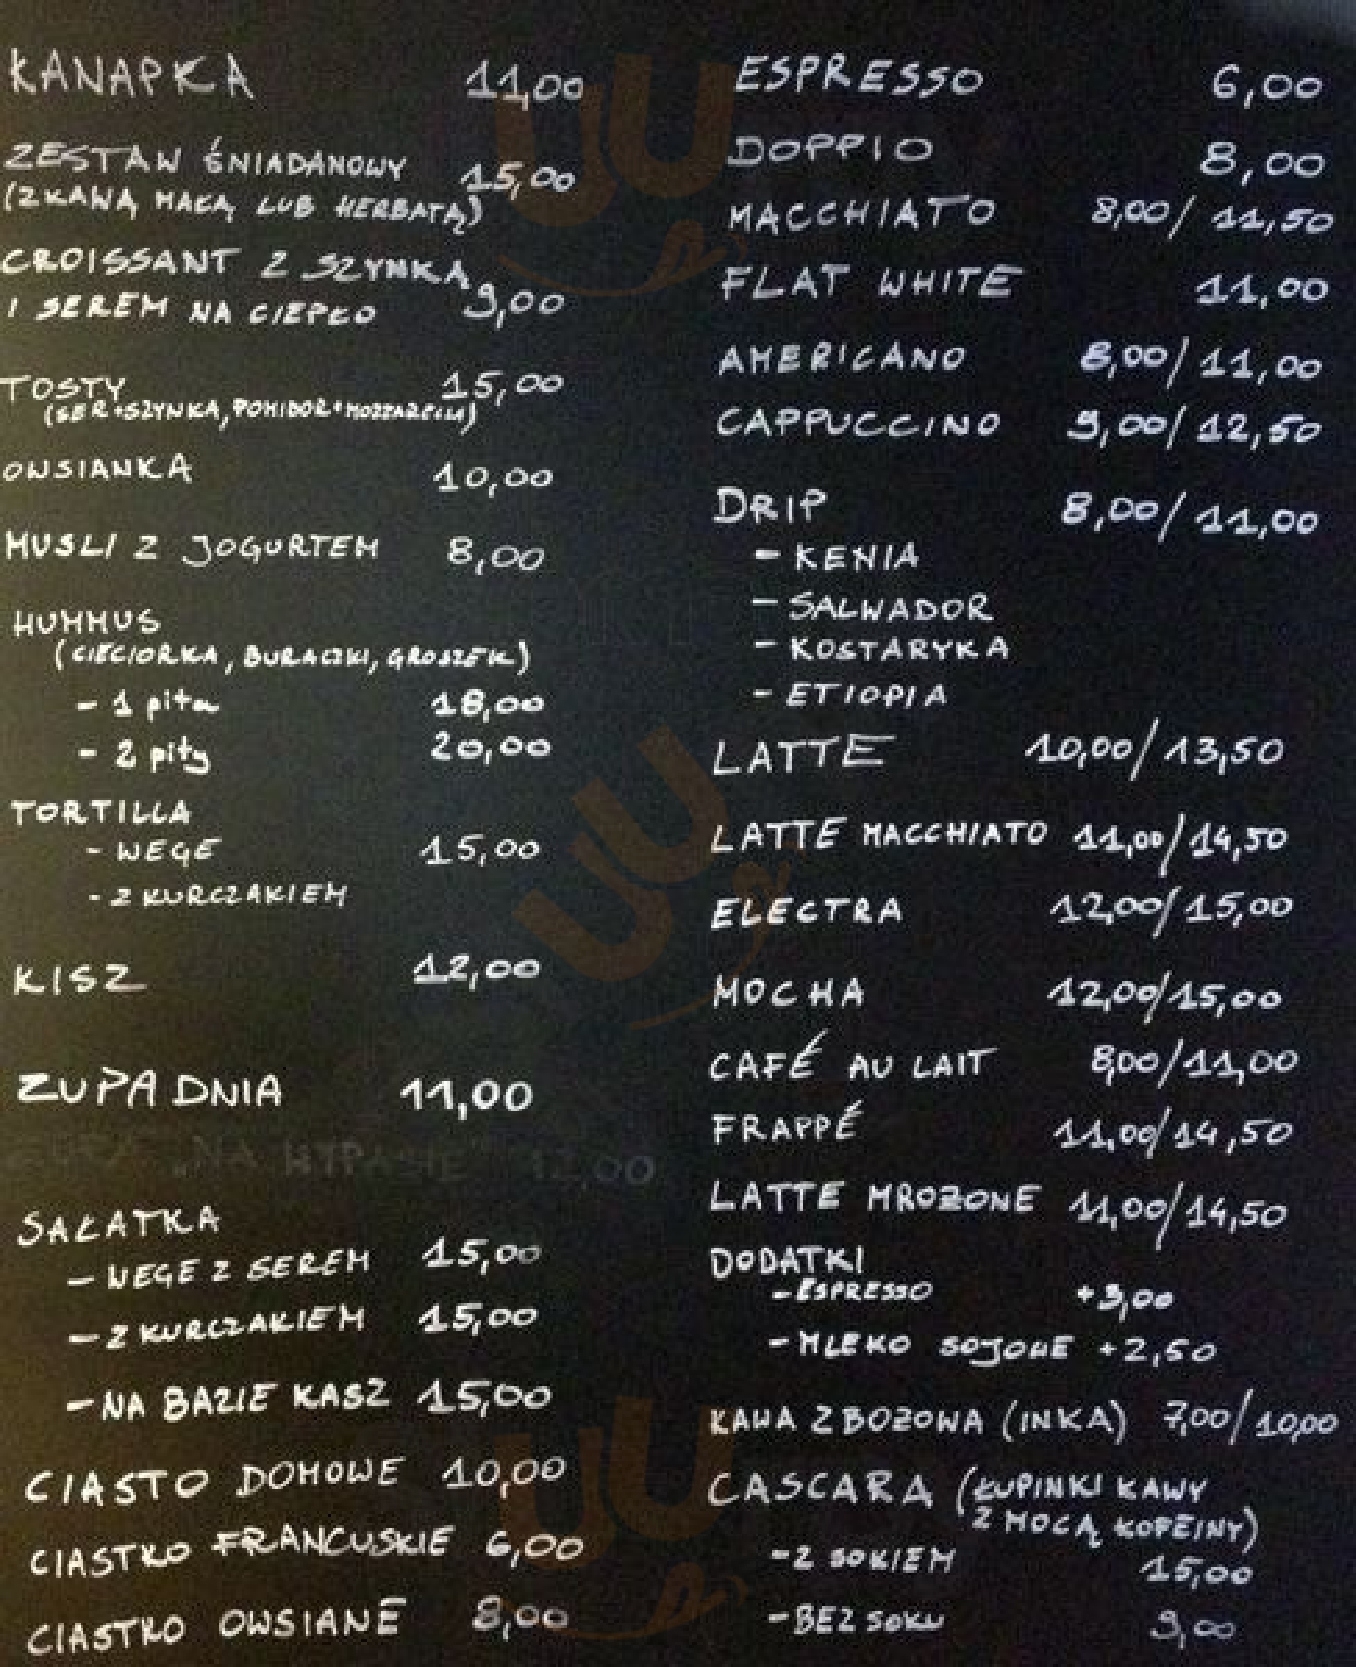 KANAPKA 11,00
ZESTAW ŚNIADANOWY 15,00
(Z KAWĄ MAŁĄ LUB HERBATĄ)
CROISSANT Z SZYNKĄ
I SEREM NA CIEPŁO 9,00
TOSTY 15,00
(SER+SZYNKA, POMIDOR+MOZZARELLA)
OWSIANKA 10,00
MUSLI Z JOGURTEM 8,00
HUMMUS
(CIECIORKA, BURACZKI, GROSZEK)
- 1 pita 18,00
- 2 pity 20,00
TORTILLA
- WEGE 15,00
- Z KURCZAKIEM
KISZ 12,00
ZUPA DNIA 11,00
ZUPA "NA WYPASIE" 12,00
SAŁATKA
- WEGE Z SEREM 15,00
- Z KURCZAKIEM 15,00
- NA BAZIE KASZ 15,00
CIASTO DOMOWE 10,00
CIASTKO FRANCUSKIE 6,00
CIASTKO OWSIANE 8,00
ESPRESSO 6,00
DOPPIO 8,00
MACCHIATO 8,00/ 11,50
FLAT WHITE 11,00
AMERICANO 8,00/ 11,00
CAPPUCCINO 9,00/ 12,50
DRIP 8,00/ 11,00
- KENIA
- SALWADOR
- KOSTARYKA
- ETIOPIA
LATTE 10,00/ 13,50
LATTE MACCHIATO 11,00/14,50
ELECTRA 12,00/ 15,00
MOCHA 12,00/15,00
CAFÉ AU LAIT 8,00/11,00
FRAPPÉ 11,00/14,50
LATTE MROŻONE 11,00/14,50
DODATKI
- ESPRESSO +3,00
- MLEKO SOJOWE +2,50
KAWA ZBOŻOWA (INKA) 7,00/10,00
CASCARA (ŁUPINKI KAWY
Z MOCĄ KOFEINY)
- Z SOKIEM 15,00
- BEZ SOKU 9,00